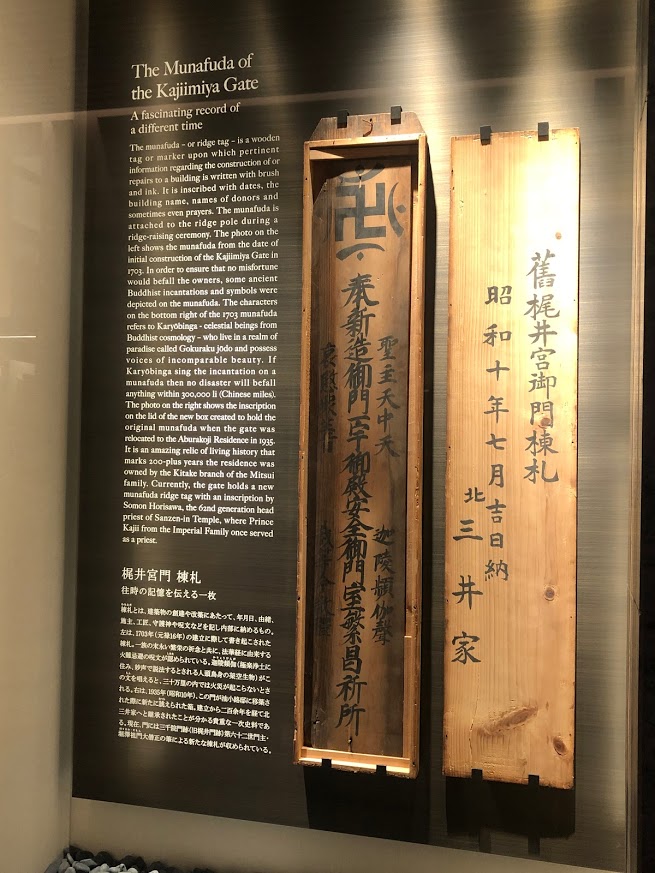 The Munafuda of
the Kajiimiya Gate
A fascinating record of
a different time
The munafuda – or ridge tag – is a wooden
tag or marker upon which pertinent
information regarding the construction of or
repairs to a building is written with brush
and ink. It is inscribed with dates, the
building name, names of donors and
sometimes even prayers. The munafuda is
attached to the ridge pole during a
ridge-raising ceremony. The photo on the
left shows the munafuda from the date of
initial construction of the Kajiimiya Gate in
1703. In order to ensure that no misfortune
would befall the owners, some ancient
Buddhist incantations and symbols were
depicted on the munafuda. The characters
on the bottom right of the 1703 munafuda
refers to Karyōbinga - celestial beings from
Buddhist cosmology - who live in a realm of
paradise called Gokuraku jōdo and possess
voices of incomparable beauty. If
Karyōbinga sing the incantation on a
munafuda then no disaster will befall
anything within 300,000 li (Chinese miles).
The photo on the right shows the inscription
on the lid of the new box created to hold the
original munafuda when the gate was
relocated to the Aburakoji Residence in 1935.
It is an amazing relic of living history that
marks 200-plus years the residence was
owned by the Kitake branch of the Mitsui
family. Currently, the gate holds a new
munafuda ridge tag with an inscription by
Somon Horisawa, the 62nd generation head
priest of Sanzen-in Temple, where Prince
Kajii from the Imperial Family once served
as a priest.
梶井宮門 棟札
往時の記憶を伝える一枚
棟札とは、建築物の創建や改築にあたって、年月日、由緒、
施主、工匠、守護神や呪文などを記し内部に納めるもの。
左は、1703年(元禄16年)の建立に際して書き起こされた
棟札。一族の末永い繁栄の祈念と共に、法華経に由来する
火難忌避の呪文が認められている。迦陵頻伽(極楽浄土に
住み、妙声で説法するとされる人頭鳥身の架空生物)がこ
の文を唱えると、三十万里の内では火災が起こらないとさ
れる。右は、1935年(昭和10年)、この門が油小路邸に移築さ
れた際に新たに誂えられた箱。建立から二百余年を経て北
三井家へと継承されたことが分かる貴重な一次史料であ
る。現在、門には三千院門跡(旧梶井門跡)第六十二世門主・
堀澤祖門大僧正の筆による新たな棟札が収められている。
卍
聖主天中天
迦陵頻伽聲
奉新造御門
御殿安全御門
繁昌祈所
舊梶井宮御門棟札
昭和十年七月吉日納
北三井家